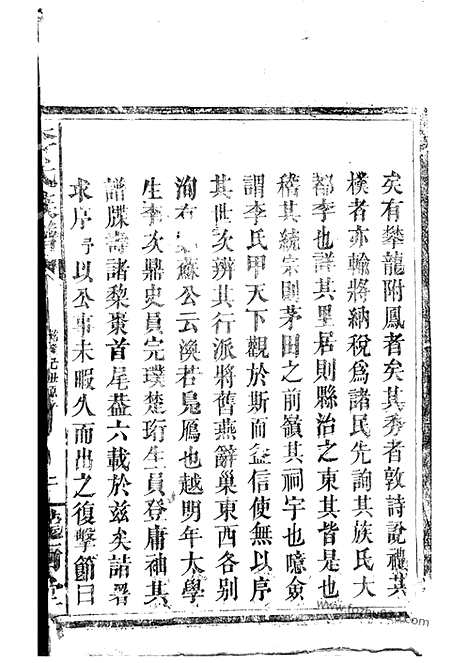 矣有攀龍附鳳者矣其秀者敦詩說禮其
樸者亦輸將納稅爲諸民先詢其族氏大
都李也譜其里居則縣治之東其皆是也
稽其統宗則茅田之前嶺其祠宇也噫僉
謂李氏甲天下觀於斯而益信使無以序
其世次辨其行派將舊燕辭巢東西各別
洵有蘇公云渙若鳧鴈也越明年太學
生李次鼎史員完璞楚珩生員登庸袖其
譜牒壽諸棃棗首尾葢六載於兹矣詰署
求序予以公事未暇久而出之復擊節曰
李氏族譜
www.fozhu920.com